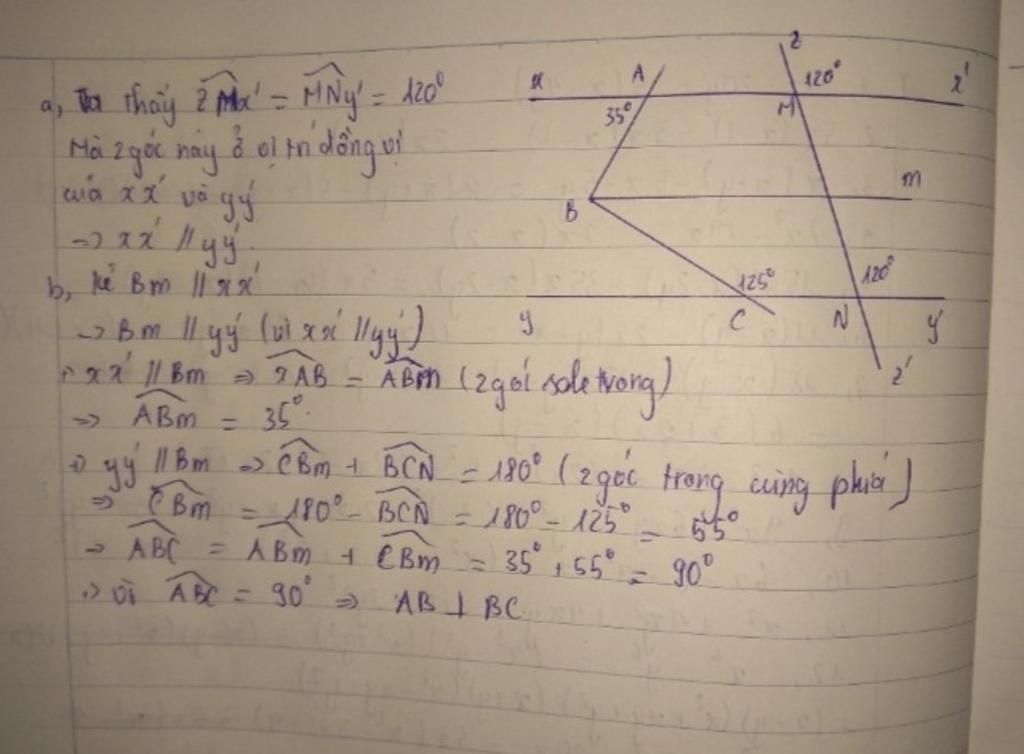 a, Ta thấy zMx' = MNy' = 120°
Mà 2 góc này ở vị trí đồng vị
của xx' và yy'
=> xx' // yy'.
b, kẻ Bm // xx'
-> Bm // yy' (vì xx' // yy')
+) xx' // Bm => xAB = ABm (2 gói sole trong)
=> ABm = 35°.
+) yy' // Bm => CBm + BCN = 180° (2 góc trong cùng phía)
=> CBm = 180° - BCN = 180° - 125° = 55°
-> ABC = ABm + CBm = 35° + 55° = 90°
+) vì ABC = 90° => AB ⊥ BC
z
x A 120° x'
35° M
B m
125° 120°
y C N y'
z'